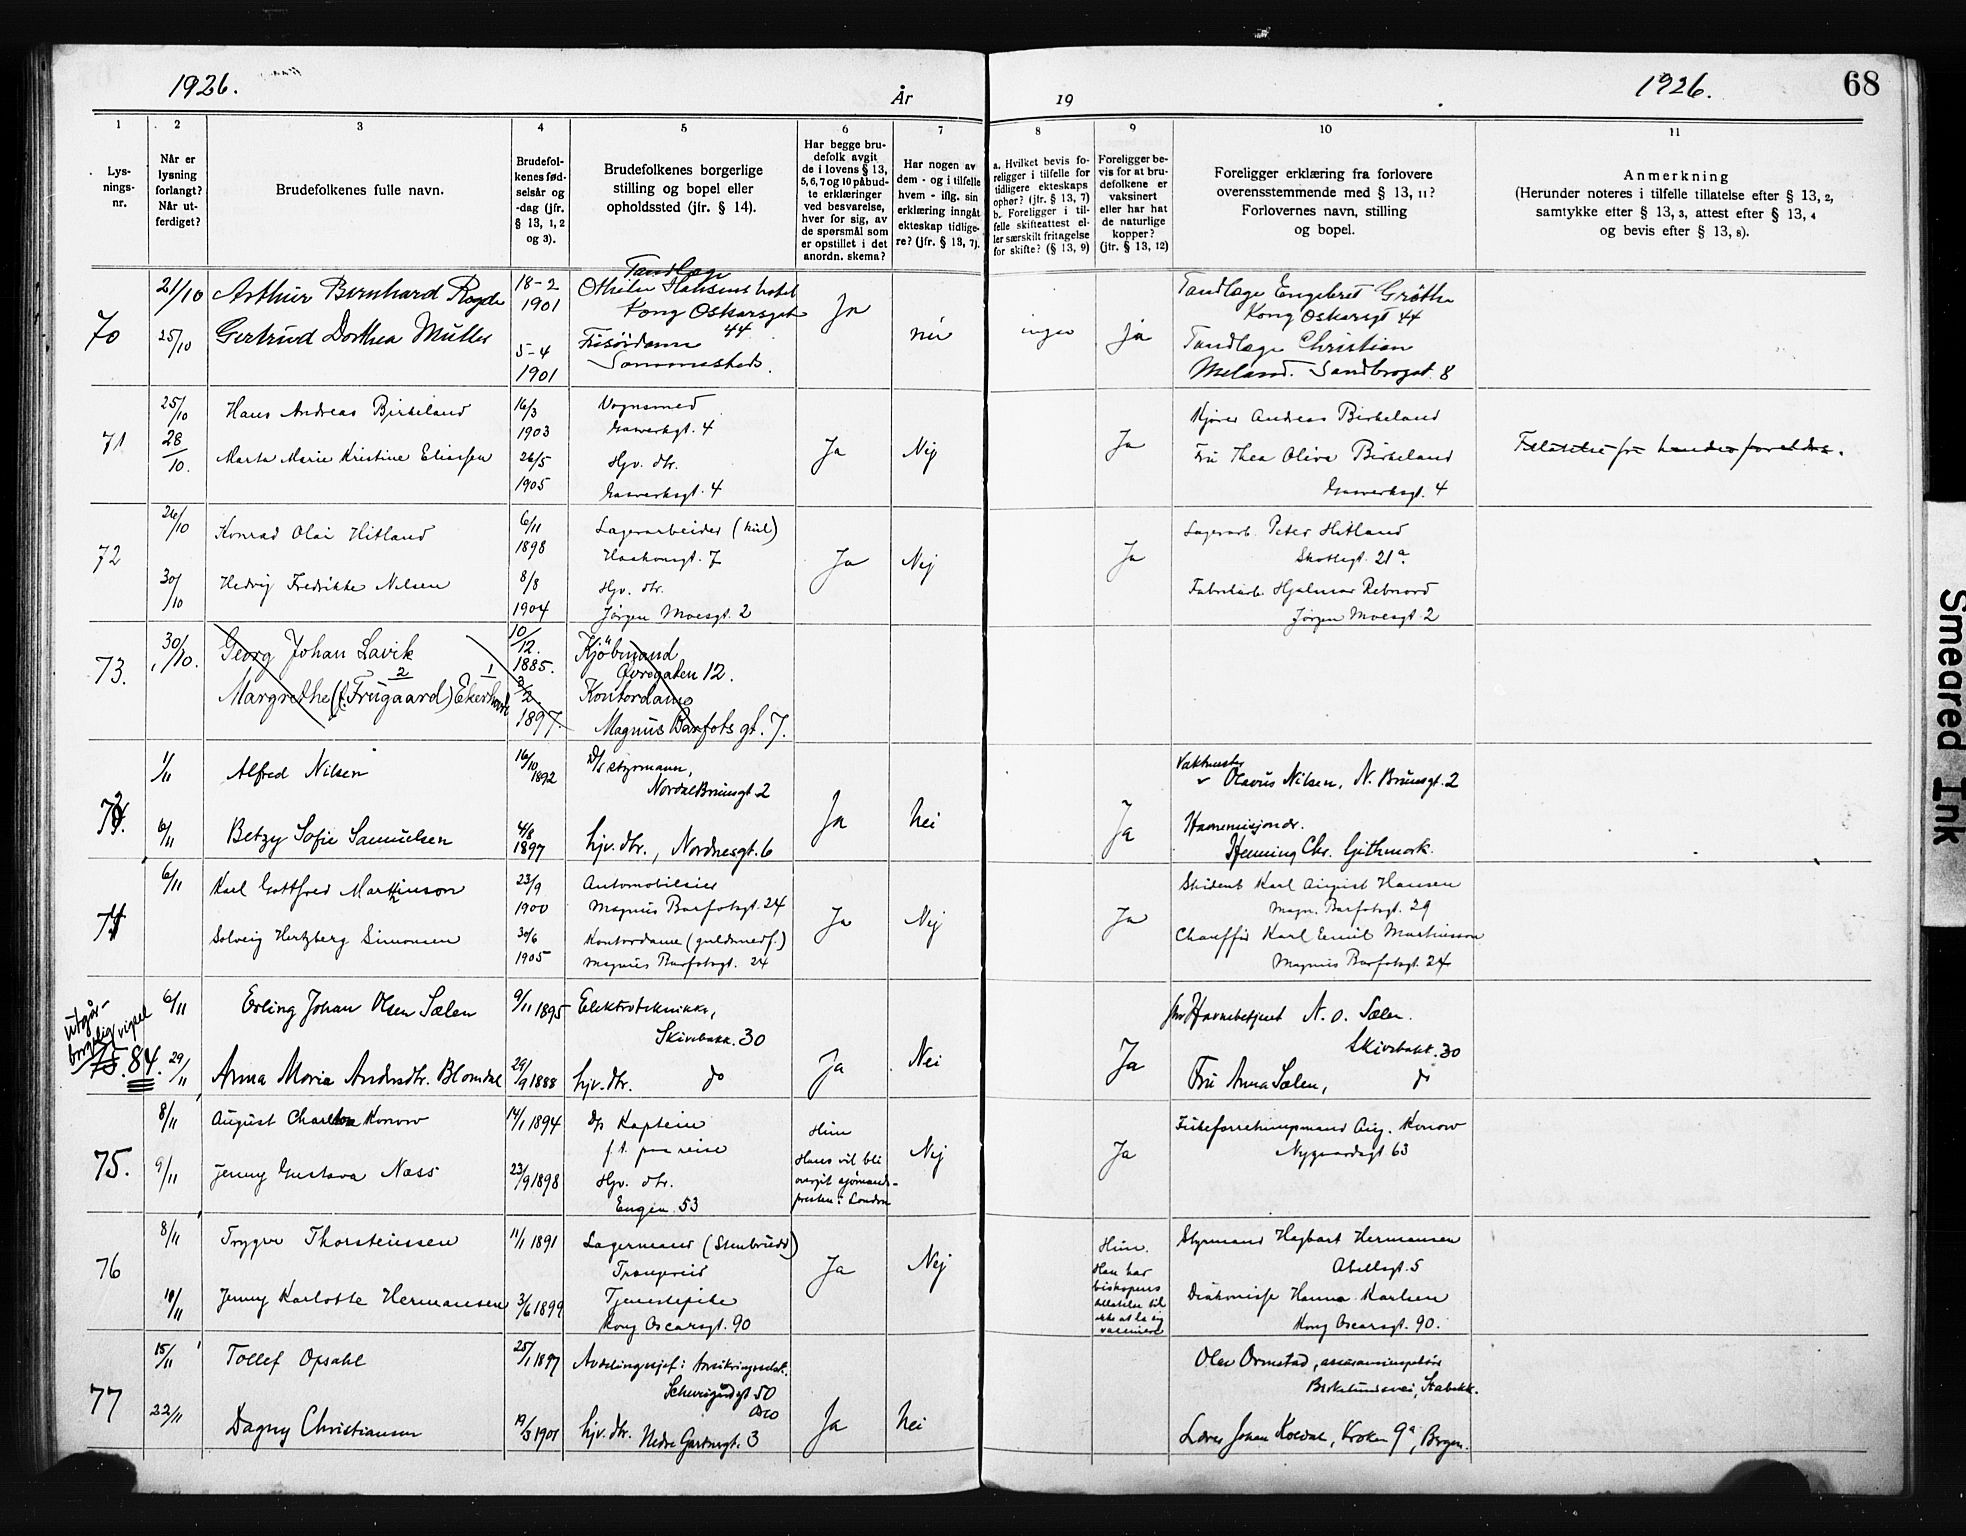 1926.
År
19
1926.
68
1
2
3
4
5
6
7
8
9
10
11
Lys-
nings-
nr.
Når er
lysning
forlangt?
Når ut-
ferdiget?
Brudefolkenes fulle navn.
Brudefol-
kenes fød-
selsår og
-dag (jfr.
§ 13, 1, 2
og 3).
Brudefolkenes borgerlige
stilling og bopel eller
opholdssted (jfr. § 14).
Har begge bru-
defolk avgit
de i lovens § 13,
5, 6, 7 og 10 påbud-
te erklæringer
ved besvarelse,
hver for sig, av
de spørsmål som
er opstillet i det
anordn. skema?
Har nogen av
dem - og i tilfelle
hvem - iflg. sin
erklæring inngått
ekteskap tidlige-
re? (jfr. § 13, 7).
a. Hvilket bevis fo-
religger i tilfelle for
tidligere ekteskaps
ophør? (jfr. § 13, 7)
b. Foreligger i til-
felle skifteattest el-
ler særskilt fritagelse
for skifte? (§ 13, 9)
Foreligger be-
vis for at bru-
defolkene er
vaksinert
eller har hat
de naturlige
kopper?
(jfr. § 13, 12)
Foreligger erklæring fra forlovere
overensstemmende med § 13, 11?
Forlovernes navn, stilling
og bopel.
Anmerkning
(Herunder noteres i tilfelle tillatelse efter § 13, 2,
samtykke efter § 13, 3, attest efter § 13, 4
og bevis efter § 13, 8).
70
21/10
25/10
Arthur Bernhard Rogde
Gertrud Dorthea Müller
18-2
1901
5-4
1901
Tandlæge
Kong Oskarsgt
44
Frisørdame
Ja
nei
ingen
ja
Tandlæge Engebret Grøthe
Kong Oskarsgt 44
Tandlæge Christian
Meland. Sandbrogt. 8
71
25/10
28/10.
Hans Andreas Birkeland
Marta Marie Kristine Eliassen
16/3
1903
26/5
1905
Vognsmed
Gasverksgt. 4
Hjv. dtr.
Gasverksgt. 4
Ja
Nej
Ja
Kjører Andreas Birkeland
Fru Thea Olive Birkeland
Gasverksgt. 4
72
26/10
30/10
Konrad Olai Hitland
Hedvig Fredrikke Nilsen
6/11
1898
8/8
1904
Lagerarbeider (kul)
Haakonsgt. 7
Hjv. dtr.
Jørgen Moesgt. 2
Ja
Nej
Ja
Lagerarb. Peter Hitland
Skottegt. 21a.
Fabrikarb. Hjalmar
Jørgen Moesgt. 2
73.
30/10.
Georg Johan Lavik
Margrethe (f. Frugaard) Ekerhovd
2
1
10/12.
1885.
3/2.
1897.
Kjøbmand
Øvregaten 12.
Kontordame
Magnus Barfots gt. 7.
73.
1/11
6/11
Alfred Nilsen
Betzy Sofie Samuelsen
16/10
1892
4/8
1897
D/s styrmann,
Nordal Brunsgt 2
hjv. dtr., Nordnesgt. 6
Ja
Nei
Ja
Vaktmester
Olavus Nilsen, N. Brunsgt. 2
Henning Chr. Githmark.
74
6/11
Karl Gottfred Martinson
Solveig Hertzberg Simonsen
23/9
1900
30/6
1905
Automobileier
Magnus Barfotsgt. 24
Kontordame (guldsmedf.)
Magnus Barfotsgt. 24
Ja
Nej
Ja
Student Karl August Hansen
Magn. Barfotsgt. 29
Chauffør Karl Emil Martinsson
Magnus Barfotsgt. 24
utgår-
borgerlig vigsel
75. 84.
6/11
29/11
Erling Johan Olsen Sælen
Anna Maria Andersdtr. Blomdal
9/11 1895
29/9 1888
Elektrotekniker,
Skivebakk. 30
hjv. dtr. do
Ja
Nei
Ja
Havnebetjent N. O. Sælen.
Skivebakk. 30
Fru Anna Sælen, do
75.
8/11
9/11
August Charlton Konow
Jenny Gustava Næss
14/1 1894
23/9 1898
D/s Kaptein
f. t. paa reise
Hjv. dtr.
Engen. 53
Hun
Hans vil bli
avgit sjømands-
presten i London
Nej
Ja
Aug. Konow
Nygaardsgt 63
76
8/11
10/11
Trygve Thorsteinssen
Jenny Karlotte Hermansen
11/1 1891
3/6 1899
Lagermand (Stenbrudd)
Tjenestepike
Kong Oscarsgt. 90
Ja
Nej
Hun.
Han har
biskopens
tillatelse til
ikke at la sig
vaccinere
Styrmand Hagbart Hermansen
Abelsgt. 5
Diakonisse Hanna Karlsen
Kong Oscarsgt. 90.
77
15/11
22/11
Tollef Opsahl
Dagny Christiansen
25/1 1897
19/3 1901
Avdelingssjef i forsikringsselsk.
Schweigaardsgt 50
Oslo
hjv. dtr. Nedre Gartnergt. 3
Ja
Nei
Olav Ormstad, assuranseinspektør
Bekkelundsvei, Stabekk.
Lærer Johan Koldal, Kroken 9a, Bergen.
Smeared Ink